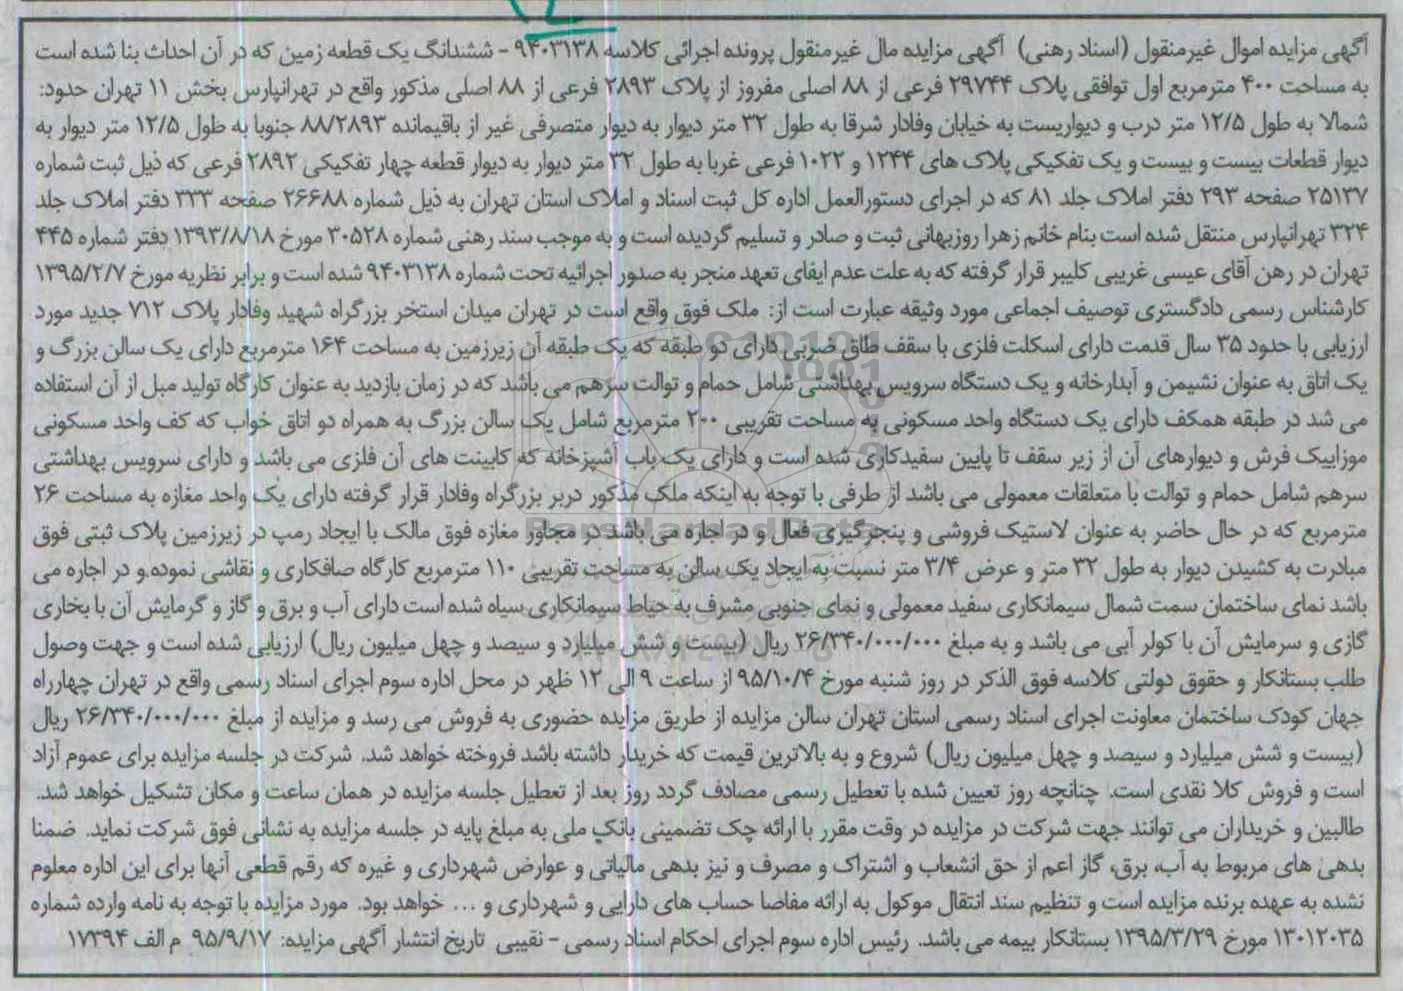 آگهی مزایده اموال غیرمنقول (اسناد رهنی) آگهی مزایده مال غیرمنقول پرونده اجرائی کلاسه ۹۴۰۳۱۳۸ - ششدانگ یک قطعه زمین که در آن احداث بنا شده است
به مساحت ۴۰۰ مترمربع اول توافقی پلاک ۲۹۷۴۴ فرعی از ۸۸ اصلی مفروز از پلاک ۲۸۹۳ فرعی از ۸۸ اصلی مذکور واقع در تهرانپارس بخش ۱۱ تهران حدود:
شمالا به طول ۱۲/۵ متر درب و دیواریست به خیابان وفادار شرقا به طول ۳۲ متر دیوار به دیوار متصرفی غیر از باقیمانده ۸۸/۲۸۹۳ جنوبا به طول ۱۲/۵ متر دیوار به
دیوار قطعات بیست و بیست و یک تفکیکی پلاک های ۱۲۴۴ و ۱۰۲۲ فرعی غربا به طول ۳۲ متر دیوار به دیوار قطعه چهار تفکیکی ۲۸۹۲ فرعی که ذیل ثبت شماره
۲۵۱۳۷ صفحه ۲۹۳ دفتر املاک جلد ۸۱ که در اجرای دستورالعمل اداره کل ثبت اسناد و املاک استان تهران به ذیل شماره ۲۶۶۸۸ صفحه ۳۳۳ دفتر املاک جلد
۳۲۴ تهرانپارس منتقل شده است بنام خانم زهرا روزبهانی ثبت و صادر و تسلیم گردیده است و به موجب سند رهنی شماره ۳۰۵۲۸ مورخ ۱۳۹۳/۸/۱۸ دفتر شماره ۴۴۵
تهران در رهن آقای عیسی غریبی کلیبر قرار گرفته که به علت عدم ایفای تعهد منجر به صدور اجرائیه تحت شماره ۹۴۰۳۱۳۸ شده است و برابر نظریه مورخ ۱۳۹۵/۲/۷
کارشناس رسمی دادگستری توصیف اجماعی مورد وثیقه عبارت است از: ملک فوق واقع است در تهران میدان استخر بزرگراه شهید وفادار پلاک ۷۱۲ جدید مورد
ارزیابی با حدود ۳۵ سال قدمت دارای اسکلت فلزی با سقف طاق ضربی دارای دو طبقه که یک طبقه آن زیرزمین به مساحت ۱۶۴ مترمربع دارای یک سالن بزرگ و
یک اتاق به عنوان نشیمن و آبدارخانه و یک دستگاه سرویس بهداشتی شامل حمام و توالت سرهم می باشد که در زمان بازدید به عنوان کارگاه تولید مبل از آن استفاده
می شد در طبقه همکف دارای یک دستگاه واحد مسکونی به مساحت تقریبی ۲۰۰ مترمربع شامل یک سالن بزرگ به همراه دو اتاق خواب که کف واحد مسکونی
موزاییک فرش و دیوارهای آن از زیر سقف تا پایین سفیدکاری شده است و دارای یک باب آشپزخانه که کابینت های آن فلزی می باشد و دارای سرویس بهداشتی
سرهم شامل حمام و توالت با متعلقات معمولی می باشد از طرفی با توجه به اینکه ملک مذکور دربر بزرگراه وفادار قرار گرفته دارای یک واحد مغازه به مساحت ۲۶
مترمربع که در حال حاضر به عنوان لاستیک فروشی و پنجرگیری فعال و در اجاره می باشد در مجاور مغازه فوق مالک با ایجاد رمپ در زیرزمین پلاک ثبتی فوق
مبادرت به کشیدن دیوار به طول ۳۲ متر و عرض ۳/۴ متر نسبت به ایجاد یک سالن به مساحت تقریبی ۱۱۰ مترمربع کارگاه صافکاری و نقاشی نموده و در اجاره می
باشد نمای ساختمان سمت شمال سیمانکاری سفید معمولی و نمای جنوبی مشرف به حیاط سیمانکاری سیاه شده است دارای آب و برق و گاز و گرمایش آن با بخاری
گازی و سرمایش آن با کولر آبی می باشد و به مبلغ ۲۶/۳۴۰/۰۰۰/۰۰۰ ریال (بیست و شش میلیارد و سیصد و چهل میلیون ریال) ارزیابی شده است و جهت وصول
طلب بستانکار و حقوق دولتی کلاسه فوق الذکر در روز شنبه مورخ ۹۵/۱۰/۴ از ساعت ۹ الی ۱۲ ظهر در محل اداره سوم اجرای اسناد رسمی واقع در تهران چهارراه
جهان کودک ساختمان معاونت اجرای اسناد رسمی استان تهران سالن مزایده از طریق مزایده حضوری به فروش می رسد و مزایده از مبلغ ۲۶/۳۴۰/۰۰۰/۰۰۰ ریال
(بیست و شش میلیارد و سیصد و چهل میلیون ریال) شروع و به بالاترین قیمت که خریدار داشته باشد فروخته خواهد شد. شرکت در جلسه مزایده برای عموم آزاد
است و فروش کلا نقدی است. چنانچه روز تعیین شده با تعطیل رسمی مصادف گردد روز بعد از تعطیل جلسه مزایده در همان ساعت و مکان تشکیل خواهد شد.
طالبین و خریداران می توانند جهت شرکت در مزایده در وقت مقرر با ارائه چک تضمینی بانک ملی به مبلغ پایه در جلسه مزایده به نشانی فوق شرکت نماید. ضمنا
بدهی های مربوط به آب، برق، گاز اعم از حق انشعاب و اشتراک و مصرف و نیز بدهی مالیاتی و عوارض شهرداری و غیره که رقم قطعی آنها برای این اداره معلوم
نشده به عهده برنده مزایده است و تنظیم سند انتقال موکول به ارائه مفاصا حساب های دارایی و شهرداری و ... خواهد بود. مورد مزایده با توجه به نامه وارده شماره
۱۳۰۱۲۰۳۵ مورخ ۱۳۹۵/۳/۲۹ بستانکار بیمه می باشد. رئیس اداره سوم اجرای احکام اسناد رسمی - نقیبی تاریخ انتشار آگهی مزایده: ۹۵/۹/۱۷ م الف ۱۷۳۹۴